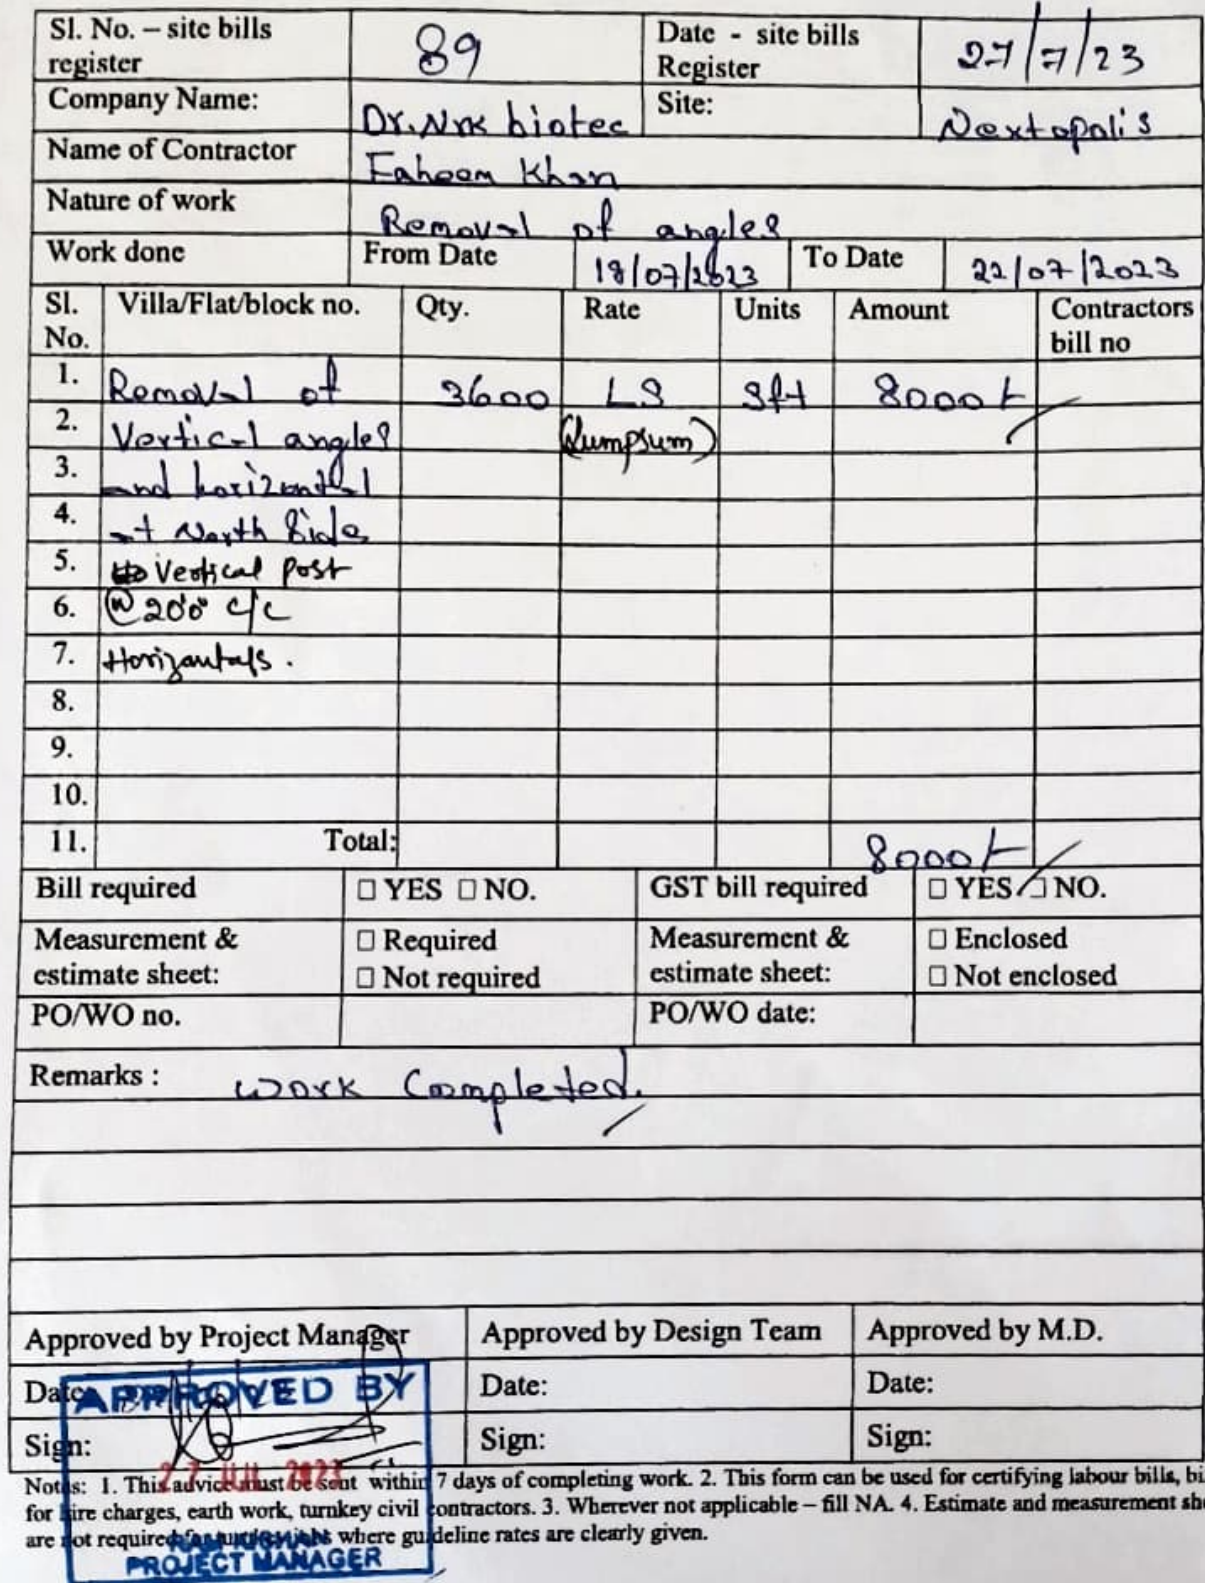 Sl. No. – site bills register 89 Date - site bills Register 27/7/23
Company Name: Dr.Nrk biotec Site: Nextopolis
Name of Contractor Faheem Khan
Nature of work Removal of angles
Work done From Date 18/07/2023 To Date 22/07/2023
Sl. No. Villa/Flat/block no. Qty. Rate Units Amount Contractors bill no
1. Removal of 3600 LS sft 8000/-
2. Vertical angles (Lumpsum)
3. and horizontal
4. at North Side
5. Vertical Post
6. @ 20'0" c/c
7. Horizantals.
8.
9.
10.
11. Total: 8000/-
Bill required □ YES □ NO. GST bill required □ YES □ NO.
Measurement & estimate sheet: □ Required □ Not required Measurement & estimate sheet: □ Enclosed □ Not enclosed
PO/WO no. PO/WO date:
Remarks : Work Completed.
Approved by Project Manager Approved by Design Team Approved by M.D.
Date: Date: Date:
Sign: Sign: Sign:
APPROVED BY
27 JUL 2023
PROJECT MANAGER
Notes: 1. This advice must be sent within 7 days of completing work. 2. This form can be used for certifying labour bills, bi
for hire charges, earth work, turnkey civil contractors. 3. Wherever not applicable – fill NA. 4. Estimate and measurement she
are not required where guideline rates are clearly given.